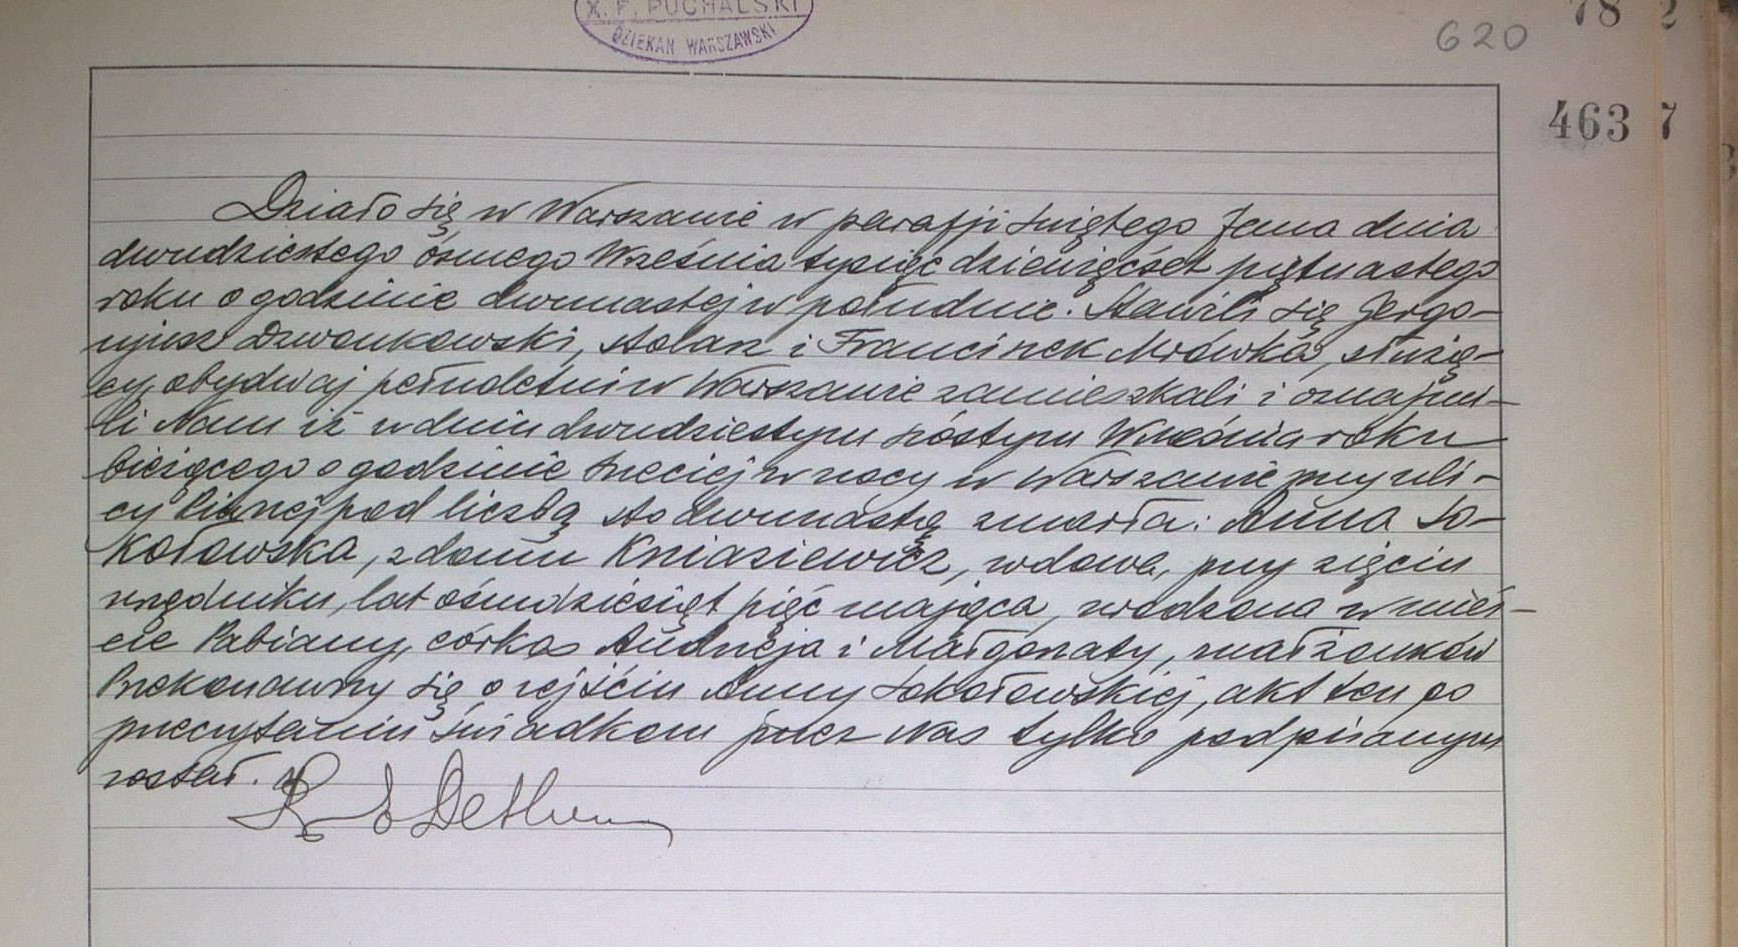 X. F. PUCHALSKI
DZIEKAN WARSZAWSKI
620
78 2
463 7
Działo się w Warszawie w parafji świętego Jana dnia
dwudziestego ósmego Września tysiąc dziewięćset piętnastego
roku o godzinie dwunastej w południe. Stawili się Jergo-
njusz Dzwonkowski, stolarz i Franciszek Mrówka, służą-
cy, obydwaj pełnoletni w Warszawie zamieszkali i oznajmi-
li Nam iż w dniu dwudziestym szóstym Września roku
bieżącego o godzinie trzeciej w nocy w Warszawie przy uli-
cy pod liczbą sto dwunastą zmarła: Anna So-
kołowska, z domu Kniaziewicz, wdowa, przy zięciu
urzędniku, lat ośmdziesiąt pięć mająca, urodzona w mieś-
cie Pabiany, córka Andrzeja i Małgorzaty, małżonków
Przekonawszy się o zejściu Anny Sokołowskiej, akt ten po
przeczytaniu świadkom przez Nas tylko podpisanym
został.